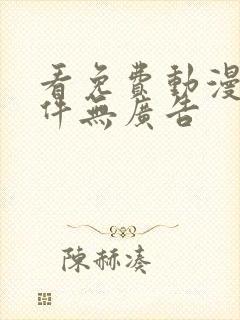 看免費動漫
件無廣告
陳赫湊